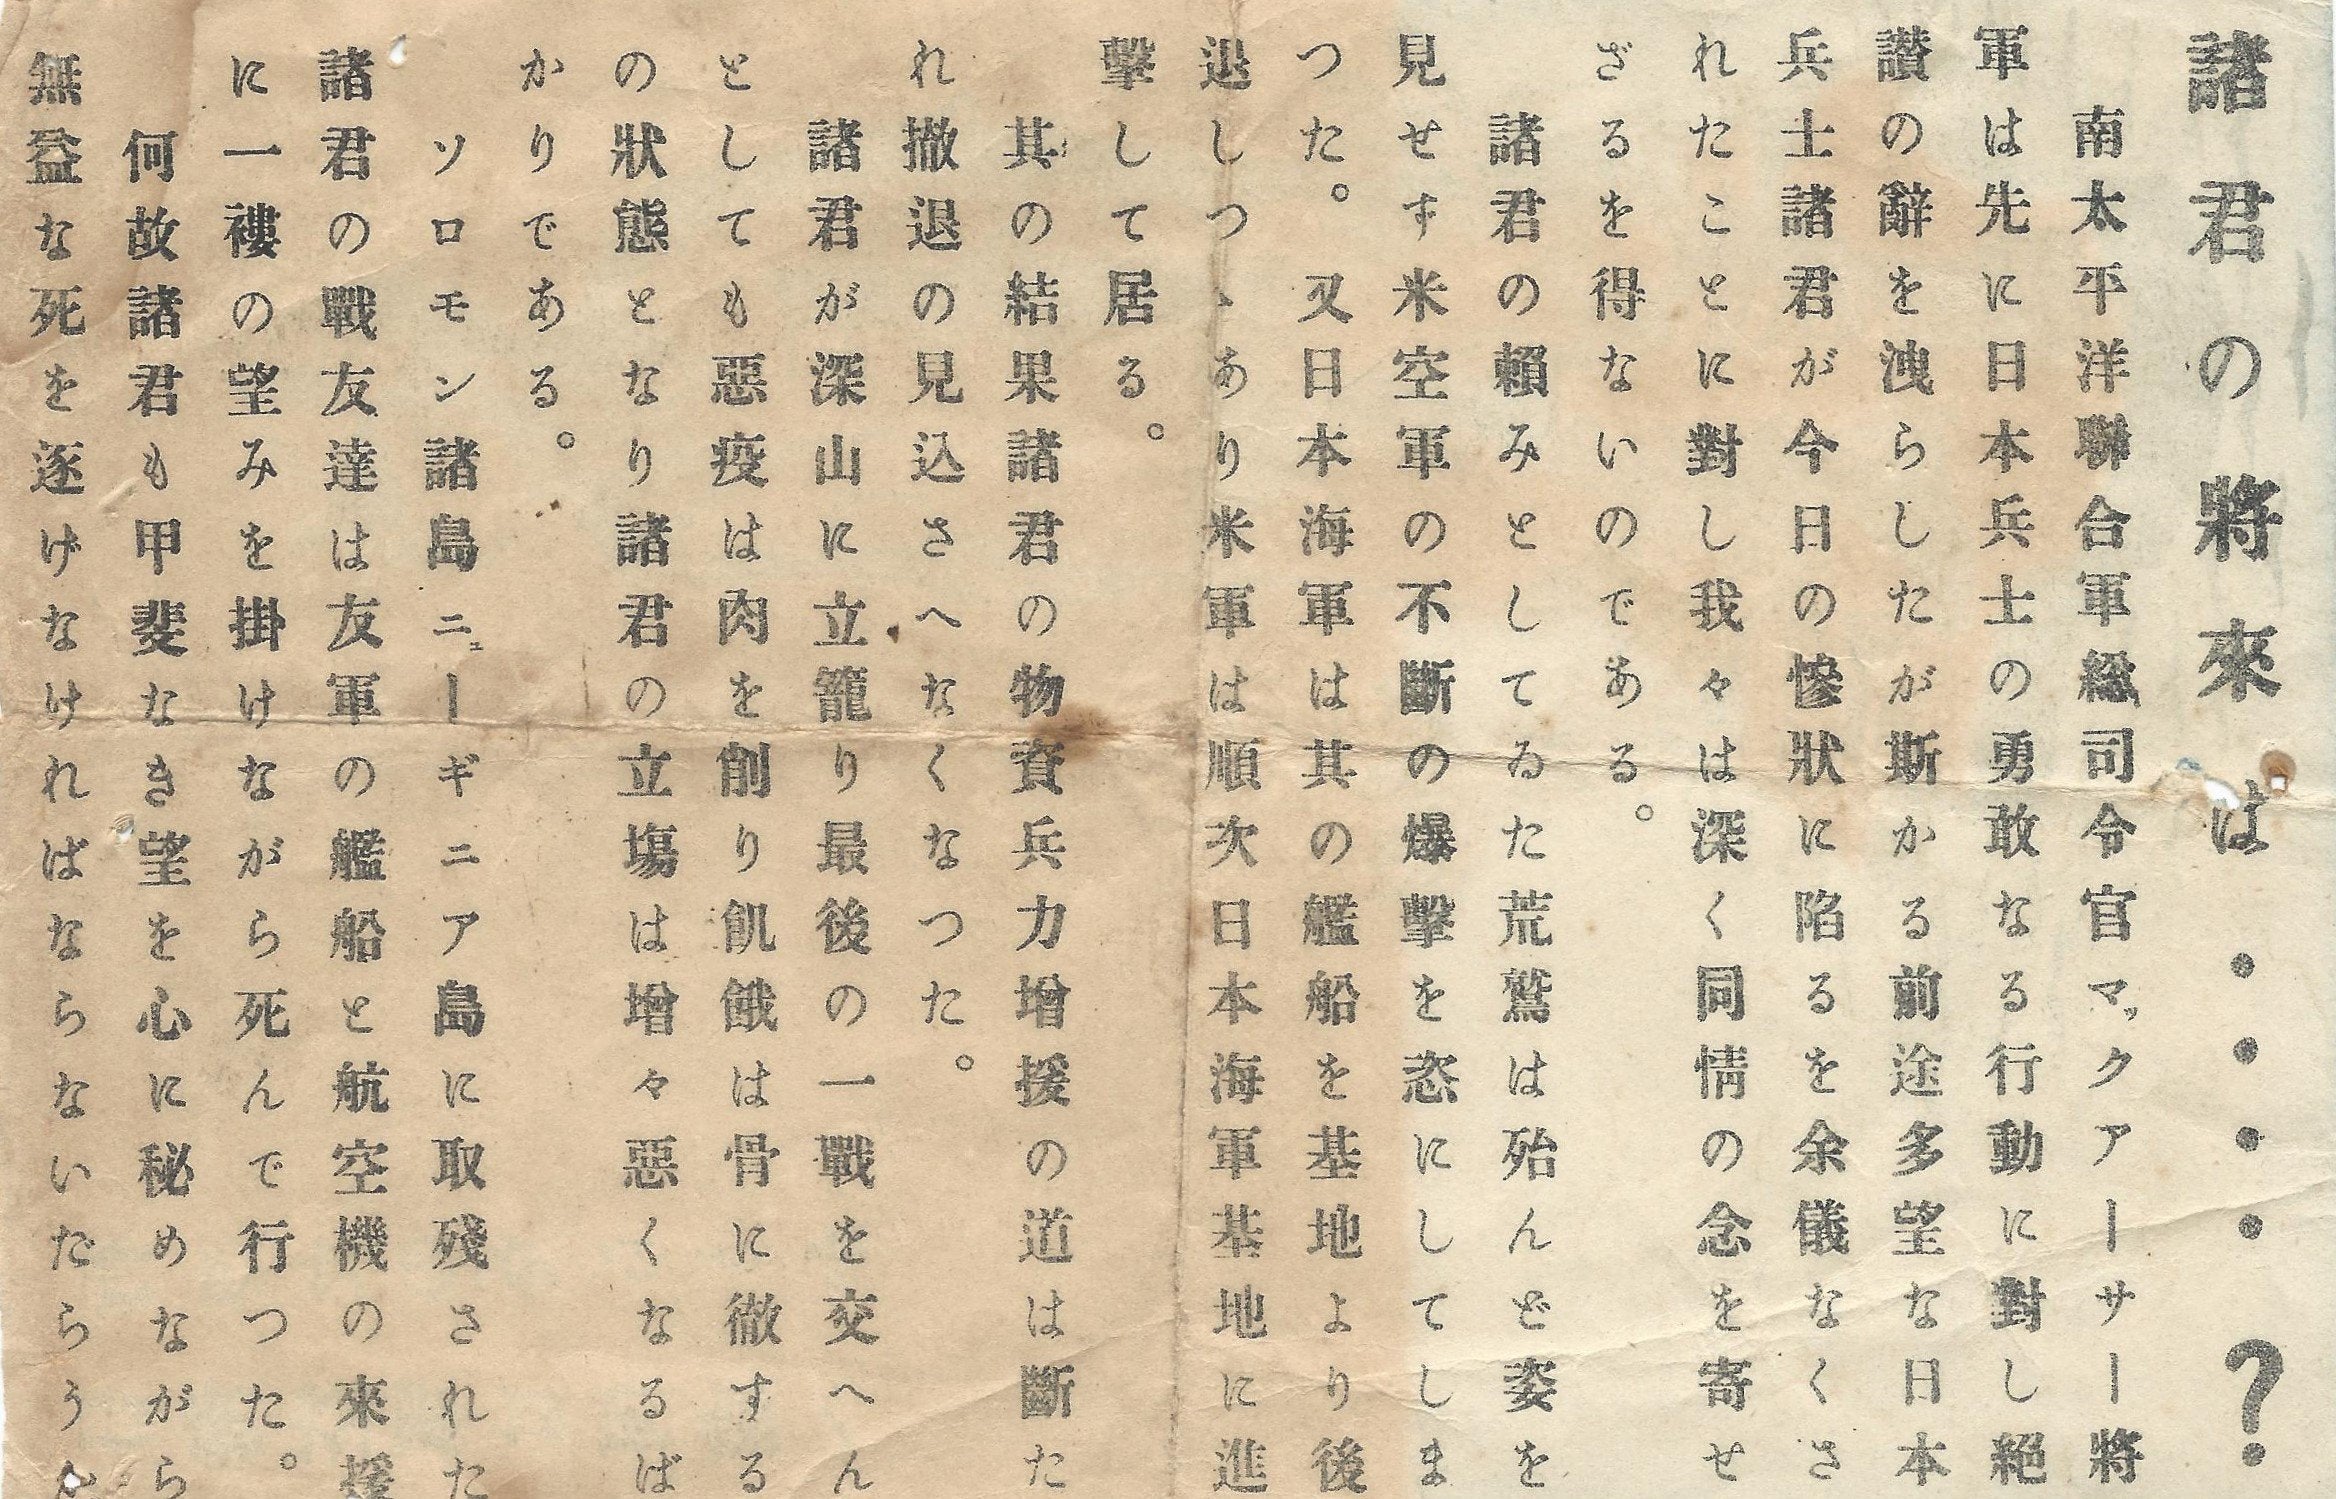 諸君の將來は・・・・?
南太平洋聯合軍總司令官マックアーサー將
軍は先に日本兵士の勇敢なる行動に對し絕
讃の辭を洩らしたが斯かる前途多望な日本
兵士諸君が今日の慘狀に陷るを余儀なくさ
れたことに對し我々は深く同情の念を寄せ
ざるを得ないのである。
諸君の賴みとしてゐた荒鷲は殆んど姿を
見せす米空軍の不斷の爆擊を恣にしてしま
つた。又日本海軍は其の艦船を基地より後
退しつゝあり米軍は順次日本海軍基地に進
擊して居る。
其の結果諸君の物資兵力增援の道は斷た
れ撤退の見込さへなくなつた。
諸君が深山に立籠り最後の一戰を交へん
としても惡疫は肉を削り飢餓は骨に徹する
の狀態となり諸君の立場は增々惡くなるば
かりである。
ソロモン諸島ニューギニア島に取殘された
諸君の戰友達は友軍の艦船と航空機の來援
に一褸の望みを掛けながら死んで行つた。
何故諸君も甲斐なき望を心に秘めながら
無益な死を逐けなければならないだらうか